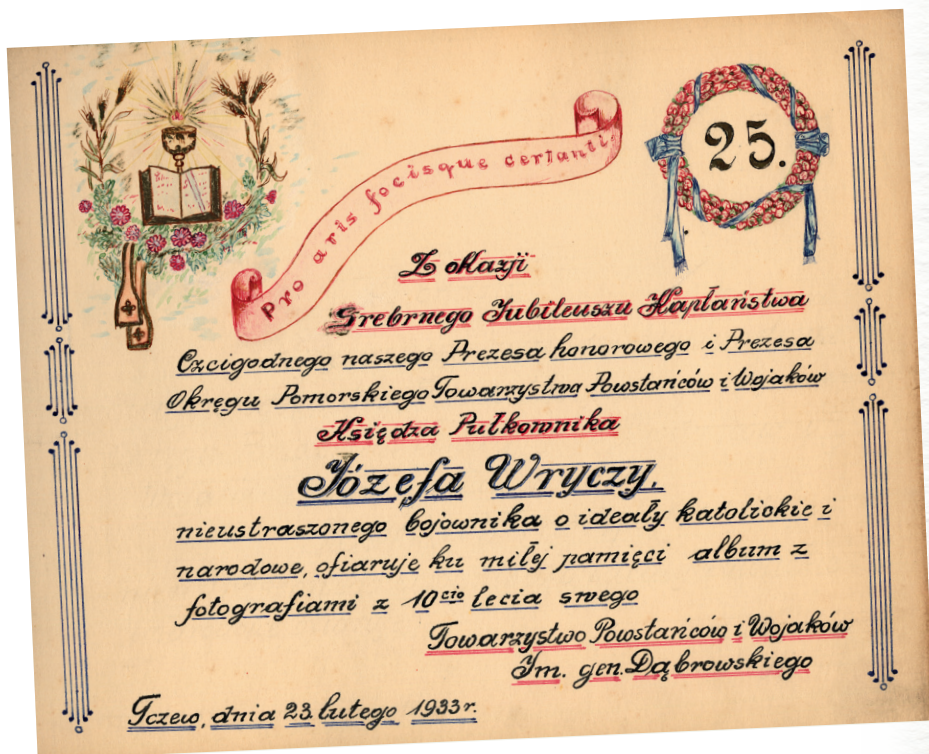 Pro aris focisque certanti
25.
Z okazji
Srebrnego Jubileuszu Kapłaństwa
Czcigodnego naszego Prezesa honorowego i Prezesa
Okręgu Pomorskiego Towarzystwa Powstańców i Wojaków
Księdza Pułkownika
Józefa Wryczy,
nieustraszonego bojownika o ideały katolickie i
narodowe, ofiaruje ku miłej pamięci album z
fotografiami z 10cio lecia swego
Towarzystwo Powstańców i Wojaków
Im. gen. Dąbrowskiego
Tczew, dnia 23. lutego 1933 r.